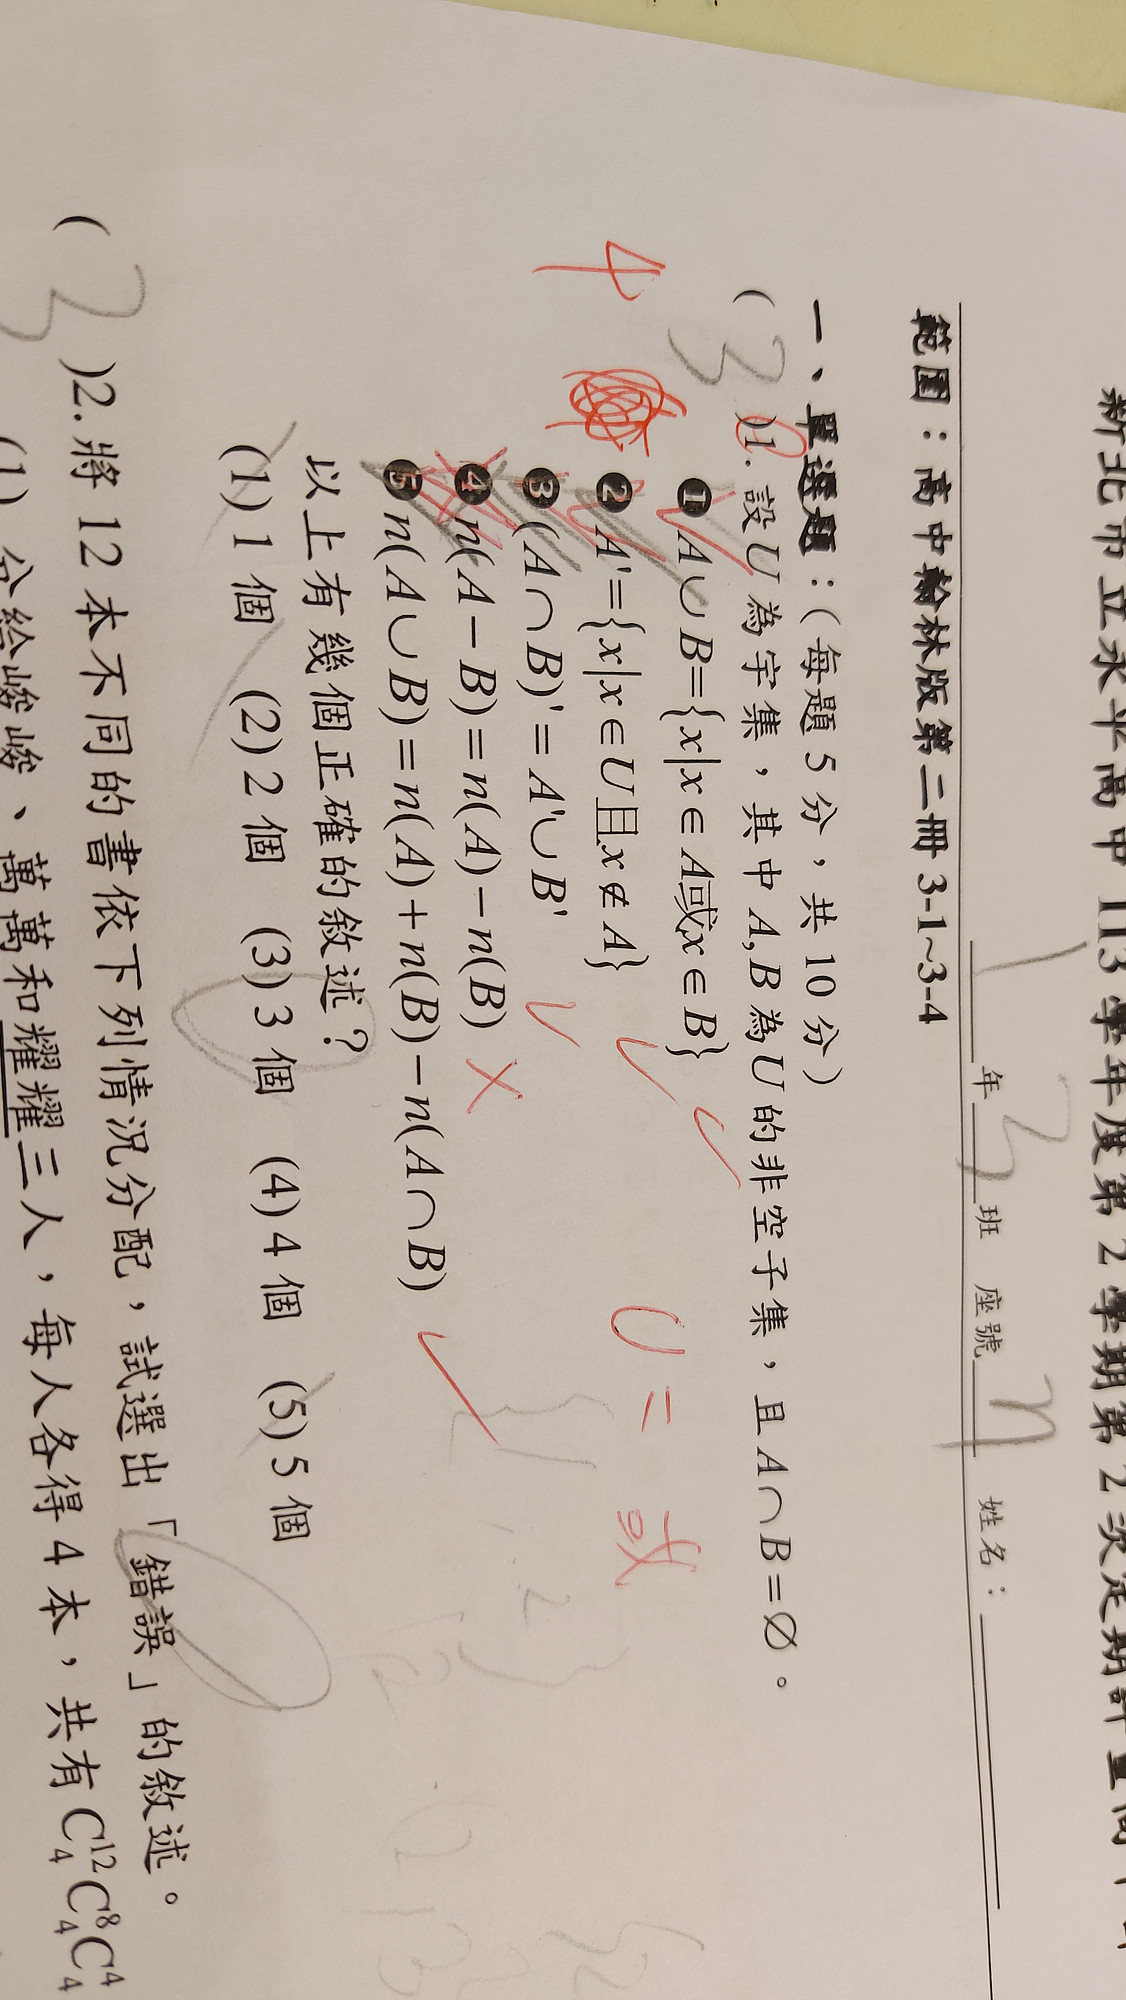 新北市立永平高中 113 學年度第 2 學期第 2 次定期評量
1 年 3 班 座號 n 姓名：
範圍：高中翰林版第二冊 3-1~3-4
一、單選題：(每題 5 分，共 10 分)
( 3 )1. 設 U 為宇集，其中 A, B 為 U 的非空子集，且 A∩B=∅。
❶ A∪B={x|x∈A或x∈B} ✓
❷ A'={x|x∈U且x∉A} ✓ U = 或
4
❸ (A∩B)'=A'∪B' ✓
❹ n(A−B)=n(A)−n(B) ×
❺ n(A∪B)=n(A)+n(B)−n(A∩B) ✓
以上有幾個正確的敘述？
(1) 1 個 (2) 2 個 (3) 3 個 (4) 4 個 (5) 5 個
( 3 )2. 將 12 本不同的書依下列情況分配，試選出「錯誤」的敘述。
(1) 分給峻峻、萬萬和耀耀三人，每人各得 4 本，共有 C₄¹²C₄⁸C₄⁴